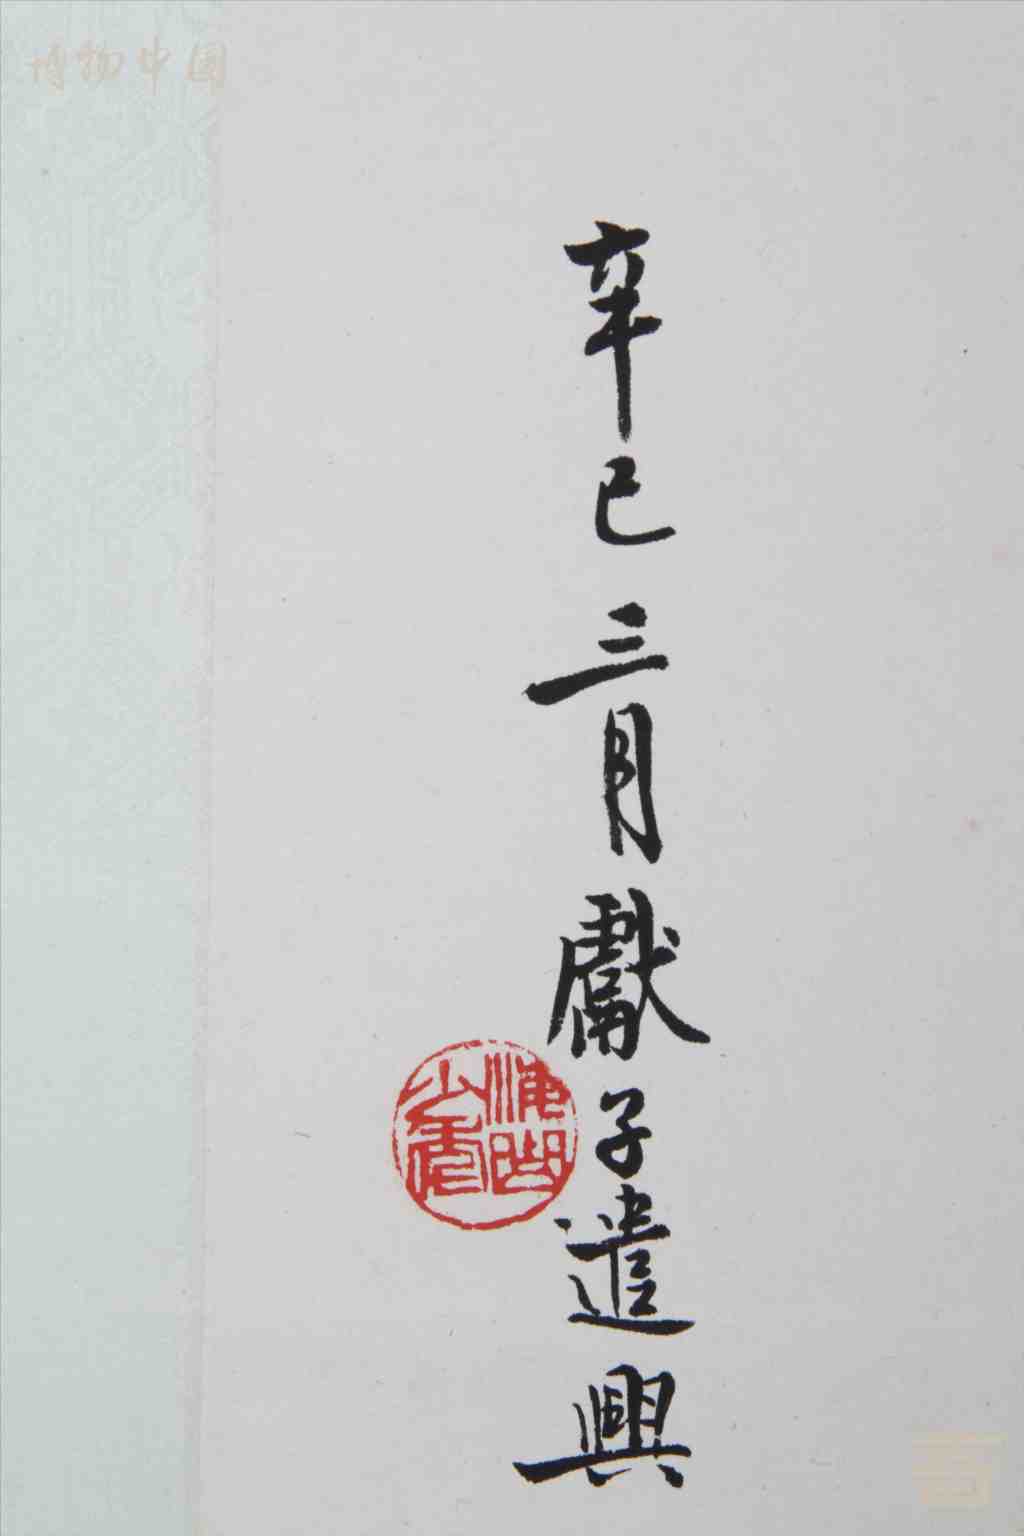 博物中国
辛巳三月獻子遣興